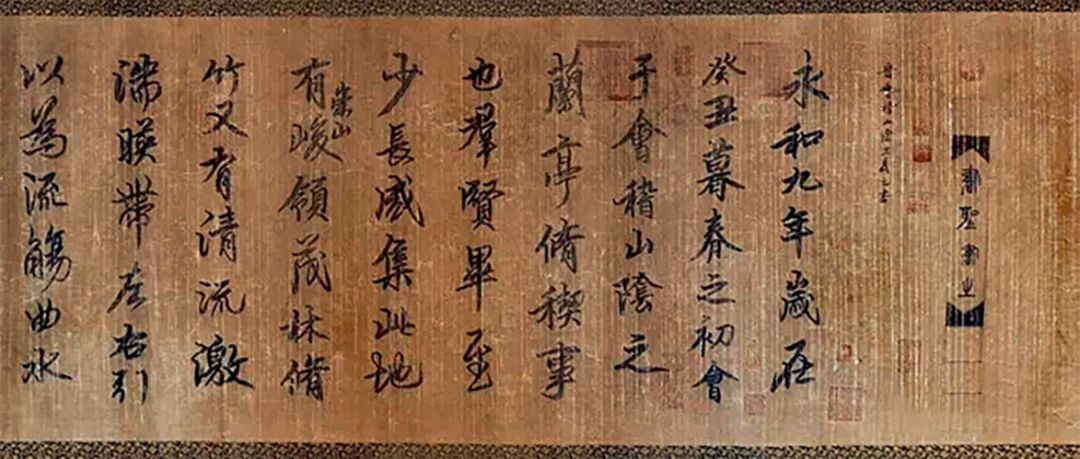 書聖書出
永和九年歲在
癸丑暮春之初會
于會稽山陰之
蘭亭脩稧事
也羣賢畢至
少長咸集此地
有崇山峻領茂林脩
竹又有清流激
湍暎帶左右引
以為流觴曲水